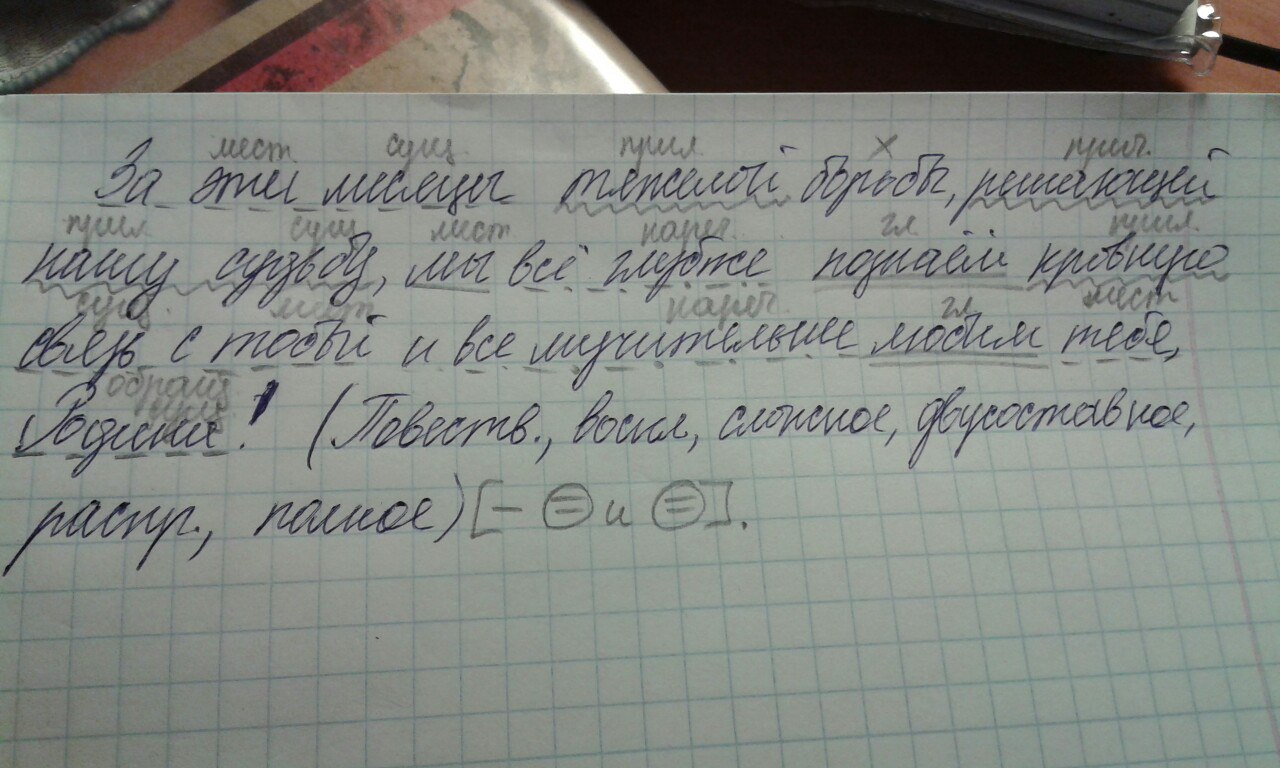 мест. сущ. прил. х прич.
За эти месяцы тяжелой борьбы, решающей
прил. сущ. мест нареч. гл. прил.
нашу судьбу, мы всё глубже познаём кровную
сущ. мест. нареч. гл. мест
связь с тобый и все мучительнее любим тебя,
обращ.
Родине! (Повеств., воскл, сложное, двусоставное,
распр., полное) [– ⊜ и ⊜].